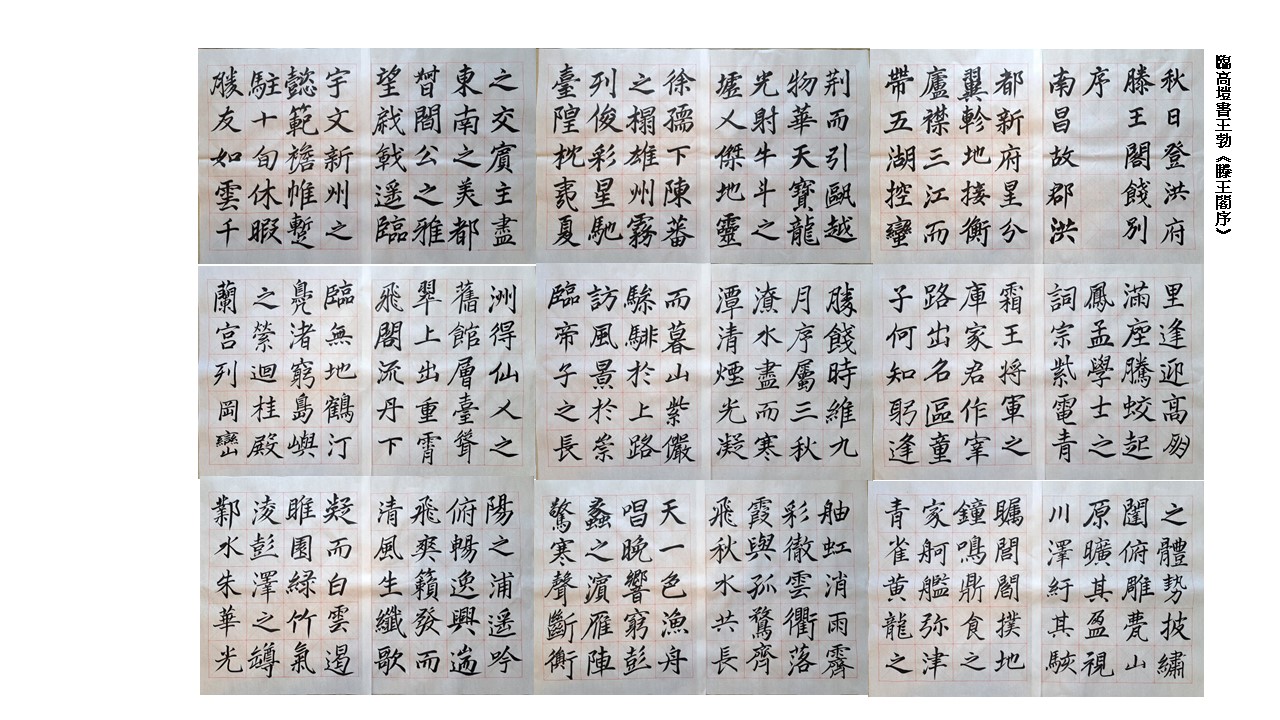 臨高塏書王勃《滕王閣序》
秋日登洪府
滕王閣餞別
序
南昌故郡洪
都新府星分
翼軫地接衡
廬襟三江而
帶五湖控蠻
荆而引甌越
物華天寶龍
光射牛斗之
墟人傑地靈
徐孺下陳蕃
之榻雄州霧
列俊彩星馳
臺隍枕夷夏
之交賓主盡
東南之美都
督閻公之雅
望戟遥臨
宇文新州之
懿範襜帷蹔
駐十旬休暇
勝友如雲千
里逢迎高朋
滿座騰蛟起
鳳孟學士之
詞宗紫電青
霜王將軍之
庫家君作宰
路出名區童
子何知躬逢
勝餞時維九
月序屬三秋
潦水盡而寒
潭清煙光凝
而暮山紫儼
驂騑於上路
訪風景於崇
臨帝子之長
洲得仙人之
舊館層臺聳
翠上出重霄
飛閣流丹下
臨無地鶴汀
鳧渚窮島嶼
之縈迴桂殿
蘭宫列岡巒
之體勢披繡
闥俯雕甍山
原曠其盈視
川澤紆其駭
矚閭閻撲地
鐘鳴鼎食之
家舸艦弥津
青雀黄龍之
舳虹消雨霽
彩徹雲衢落
霞與孤鶩齊
飛秋水共長
天一色漁舟
唱晚響窮彭
蠡之濱雁陣
驚寒聲斷衡
陽之浦遥吟
俯暢逸興遄
飛爽籟發而
清風生纖歌
凝而白雲遏
睢園綠竹氣
淩彭澤之罇
鄴水朱華光